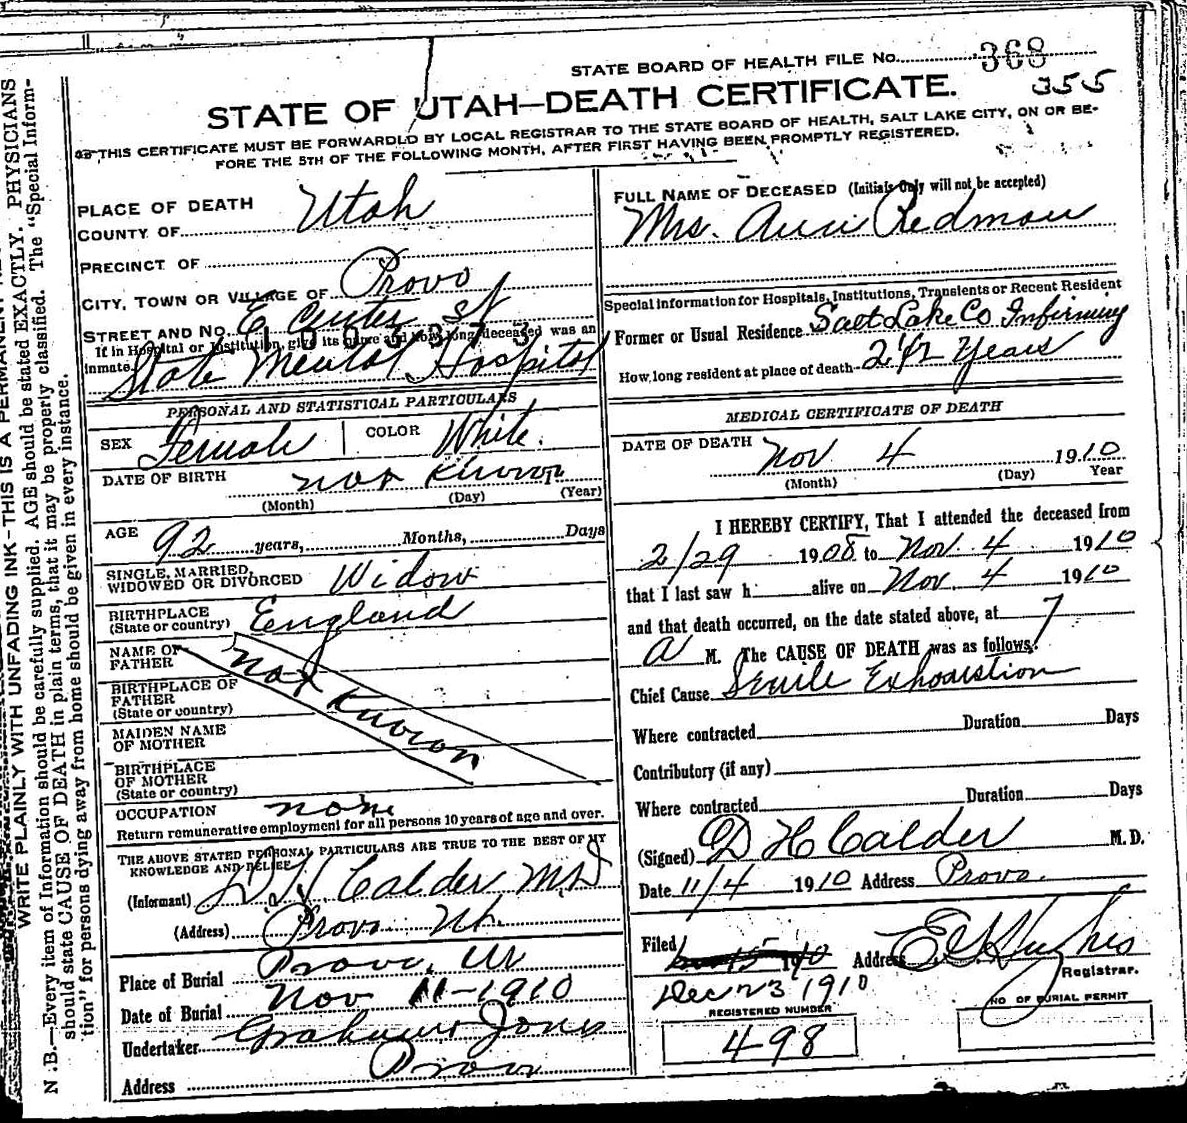 STATE BOARD OF HEALTH FILE No. 368
355
STATE OF UTAH—DEATH CERTIFICATE.
THIS CERTIFICATE MUST BE FORWARDED BY LOCAL REGISTRAR TO THE STATE BOARD OF HEALTH, SALT LAKE CITY, ON OR BE-
FORE THE 5TH OF THE FOLLOWING MONTH, AFTER FIRST HAVING BEEN PROMPTLY REGISTERED.
PLACE OF DEATH
COUNTY OF Utah
PRECINCT OF
CITY, TOWN OR VILLAGE OF Provo
STREET AND No. E Center St
If in Hospital or Institution, give its name and how long deceased was an
inmate. State Mental Hospital
PERSONAL AND STATISTICAL PARTICULARS
SEX Female COLOR White.
DATE OF BIRTH not Known
(Month) (Day) (Year)
AGE 92 years, Months, Days
SINGLE, MARRIED,
WIDOWED OR DIVORCED Widow
BIRTHPLACE
(State or country) England
NAME OF
FATHER
BIRTHPLACE OF
FATHER
(State or country)
Not Known
MAIDEN NAME
OF MOTHER
BIRTHPLACE
OF MOTHER
(State or country)
OCCUPATION none
Return remunerative employment for all persons 10 years of age and over.
THE ABOVE STATED PERSONAL PARTICULARS ARE TRUE TO THE BEST OF MY
KNOWLEDGE AND BELIEF
(Informant) D H Calder MD
(Address) Provo Ut.
Place of Burial Provo, Ut
Date of Burial Nov 11-1910
Undertaker Graham Jones
Address Provo
FULL NAME OF DECEASED (Initials Only will not be accepted)
Mrs. Ann Redman
Special information for Hospitals, Institutions, Transients or Recent Resident
Former or Usual Residence Salt Lake Co Infirmiry
How long resident at place of death 2 1/2 Years
MEDICAL CERTIFICATE OF DEATH
DATE OF DEATH Nov 4 1910
(Month) (Day) Year
I HEREBY CERTIFY, That I attended the deceased from
2/29 1908 to Nov. 4 1910
that I last saw h alive on Nov. 4 1910
and that death occurred, on the date stated above, at 7
A M. The CAUSE OF DEATH was as follows:
Chief Cause Senile Exhaustion
Where contracted Duration Days
Contributory (if any)
Where contracted Duration Days
(Signed) D H Calder M.D.
Date 11/4 1910 Address Provo.
Filed 15 1910 Address E G Hughes
Registrar.
Dec 23 1910
REGISTERED NUMBER
498
NO OF BURIAL PERMIT
WRITE PLAINLY WITH UNFADING INK—THIS IS A PERMANENT
N.B.—Every item of Information should be carefully supplied. AGE should be stated EXACTLY. PHYSICIANS
should state CAUSE OF DEATH in plain terms, that it may be properly classified. The "Special Inform-
tion" for persons dying away from home should be given in every instance.